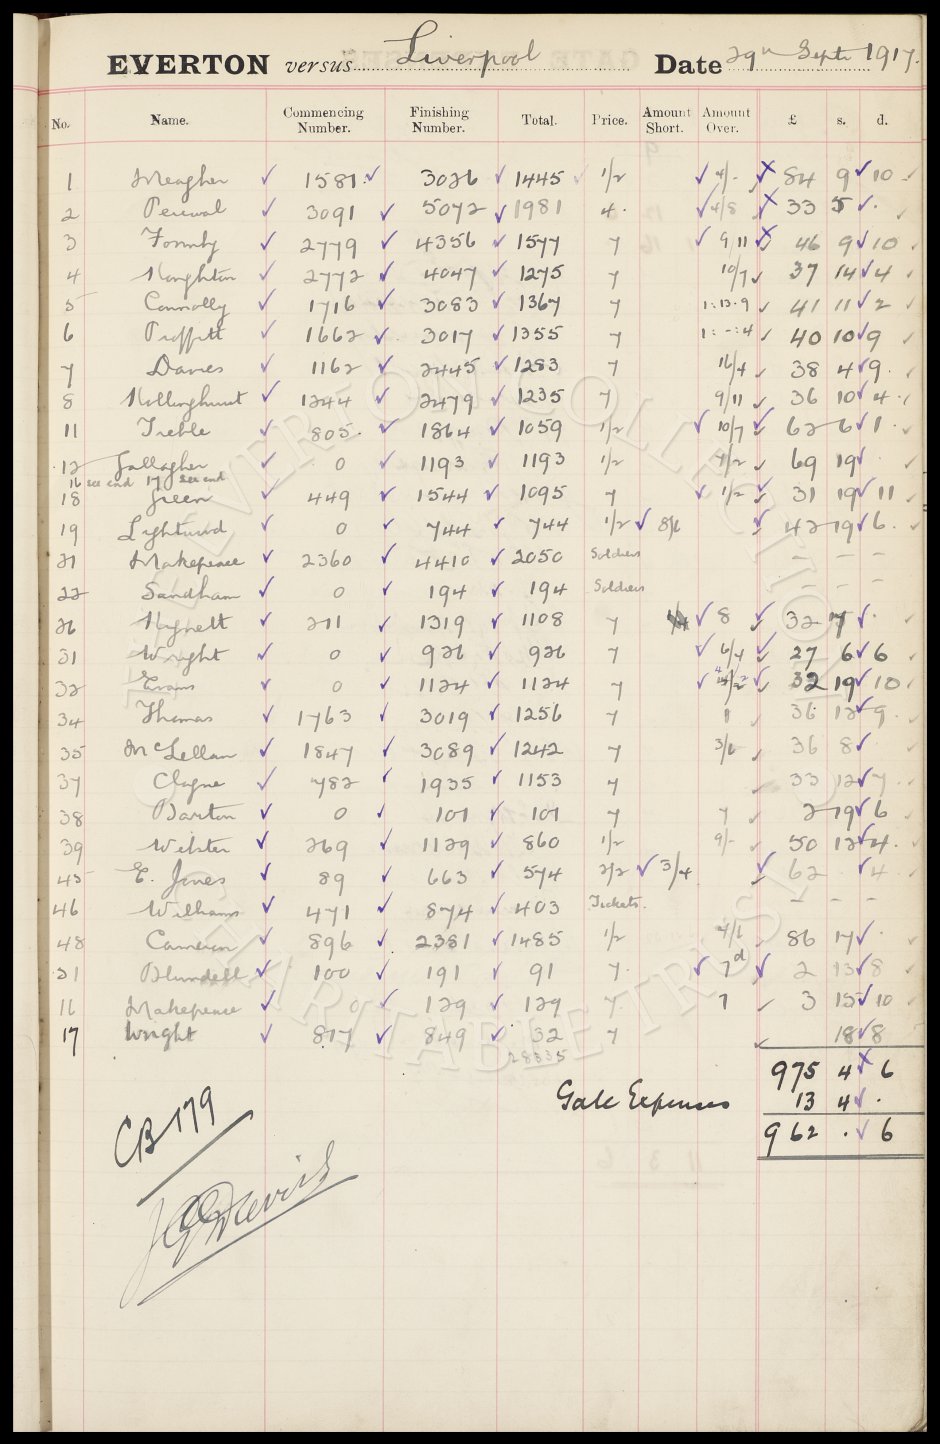 EVERTON versus Liverpool Date 29th Sept 1917.
No. Name. Commencing Number. Finishing Number. Total. Price. Amount Short. Amount Over. £ s. d.
1 Meagher 1581 3026 1445 1/2 4/- 84 9 10
2 Percival 3091 5072 1981 4 4/8 33 5 .
3 Formby 2779 4356 1577 7 9/11 46 9 10
4 Houghton 2772 4047 1275 7 10/7 37 14 4
5 Connolly 1716 3083 1367 7 1:13.9 41 11 2
6 Proffitt 1662 3017 1355 7 1:-:4 40 10 9
7 Davies 1162 2445 1283 7 16/4 38 4 9
8 Hollinghurst 1244 2479 1235 7 9/11 36 10 4
11 Treble 805 1864 1059 1/2 10/7 62 6 1
12 Gallagher 0 1193 1193 1/2 4/2 69 19 .
16 see end 17 see end
18 Green 449 1544 1095 7 1/2 31 19 11
19 Lightwood 0 744 744 1/2 8/6 42 19 6
21 Makepeace 2360 4410 2050 Soldiers – – –
22 Sandham 0 194 194 Soldiers – – –
26 Hignett 211 1319 1108 7 8 32 7 .
31 Wright 0 926 926 7 6/4 27 6 6
32 Evans 0 1124 1124 7 32 19 10
34 Thomas 1763 3019 1256 7 1 36 12 9
35 McLellan 1847 3089 1242 7 3/6 36 8
37 Clague 782 1935 1153 7 33 12 7
38 Barton 0 101 101 7 7 2 19 6
39 Webster 269 1129 860 1/2 9/- 50 12 4
45 E. Jones 89 663 574 2/2 3/4 62 . 4
46 Williams 471 874 403 Tickets. – – –
48 Cameron 896 2381 1485 1/2 4/6 86 17 .
51 Blundell 100 191 91 7 7d 2 13 8
16 Makepeace 0 129 129 7 7 3 15 10
17 Wright 817 849 32 7 18 8
28835
975 4 6
Gate Expenses 13 4 .
962 . 6
CB 179
EVERTON COLLECTION CHARITABLE TRUST